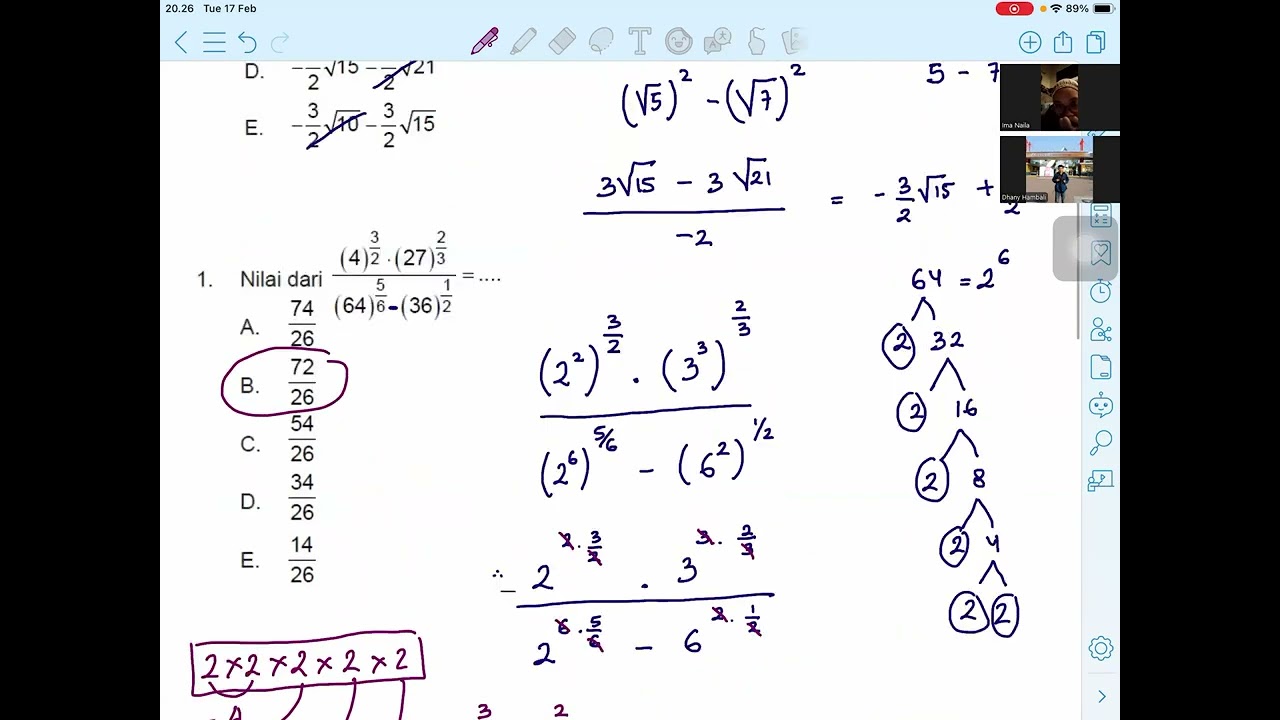 20.26 Tue 17 Feb 89%
D. -3/2√15 - 3/2√21
E. -3/2√10 - 3/2√15
(√5)² - (√7)²
5 - 7
Ima Naila
Dhany Hambali
(3√15 - 3√21)/-2 = -3/2√15 +
1. Nilai dari ((4)^(3/2) · (27)^(2/3))/((64)^(5/6) - (36)^(1/2)) = ....
A. 74/26
B. 72/26
C. 54/26
D. 34/26
E. 14/26
((2²)^(3/2) · (3³)^(2/3))/((2⁶)^(5/6) - (6²)^(1/2))
(2^(2·3/2) · 3^(3·2/3))/(2^(6·5/6) - 6^(2·1/2))
64 = 2⁶
2 32
2 16
2 8
2 4
2 2
2 × 2 × 2 × 2 × 2
3 2